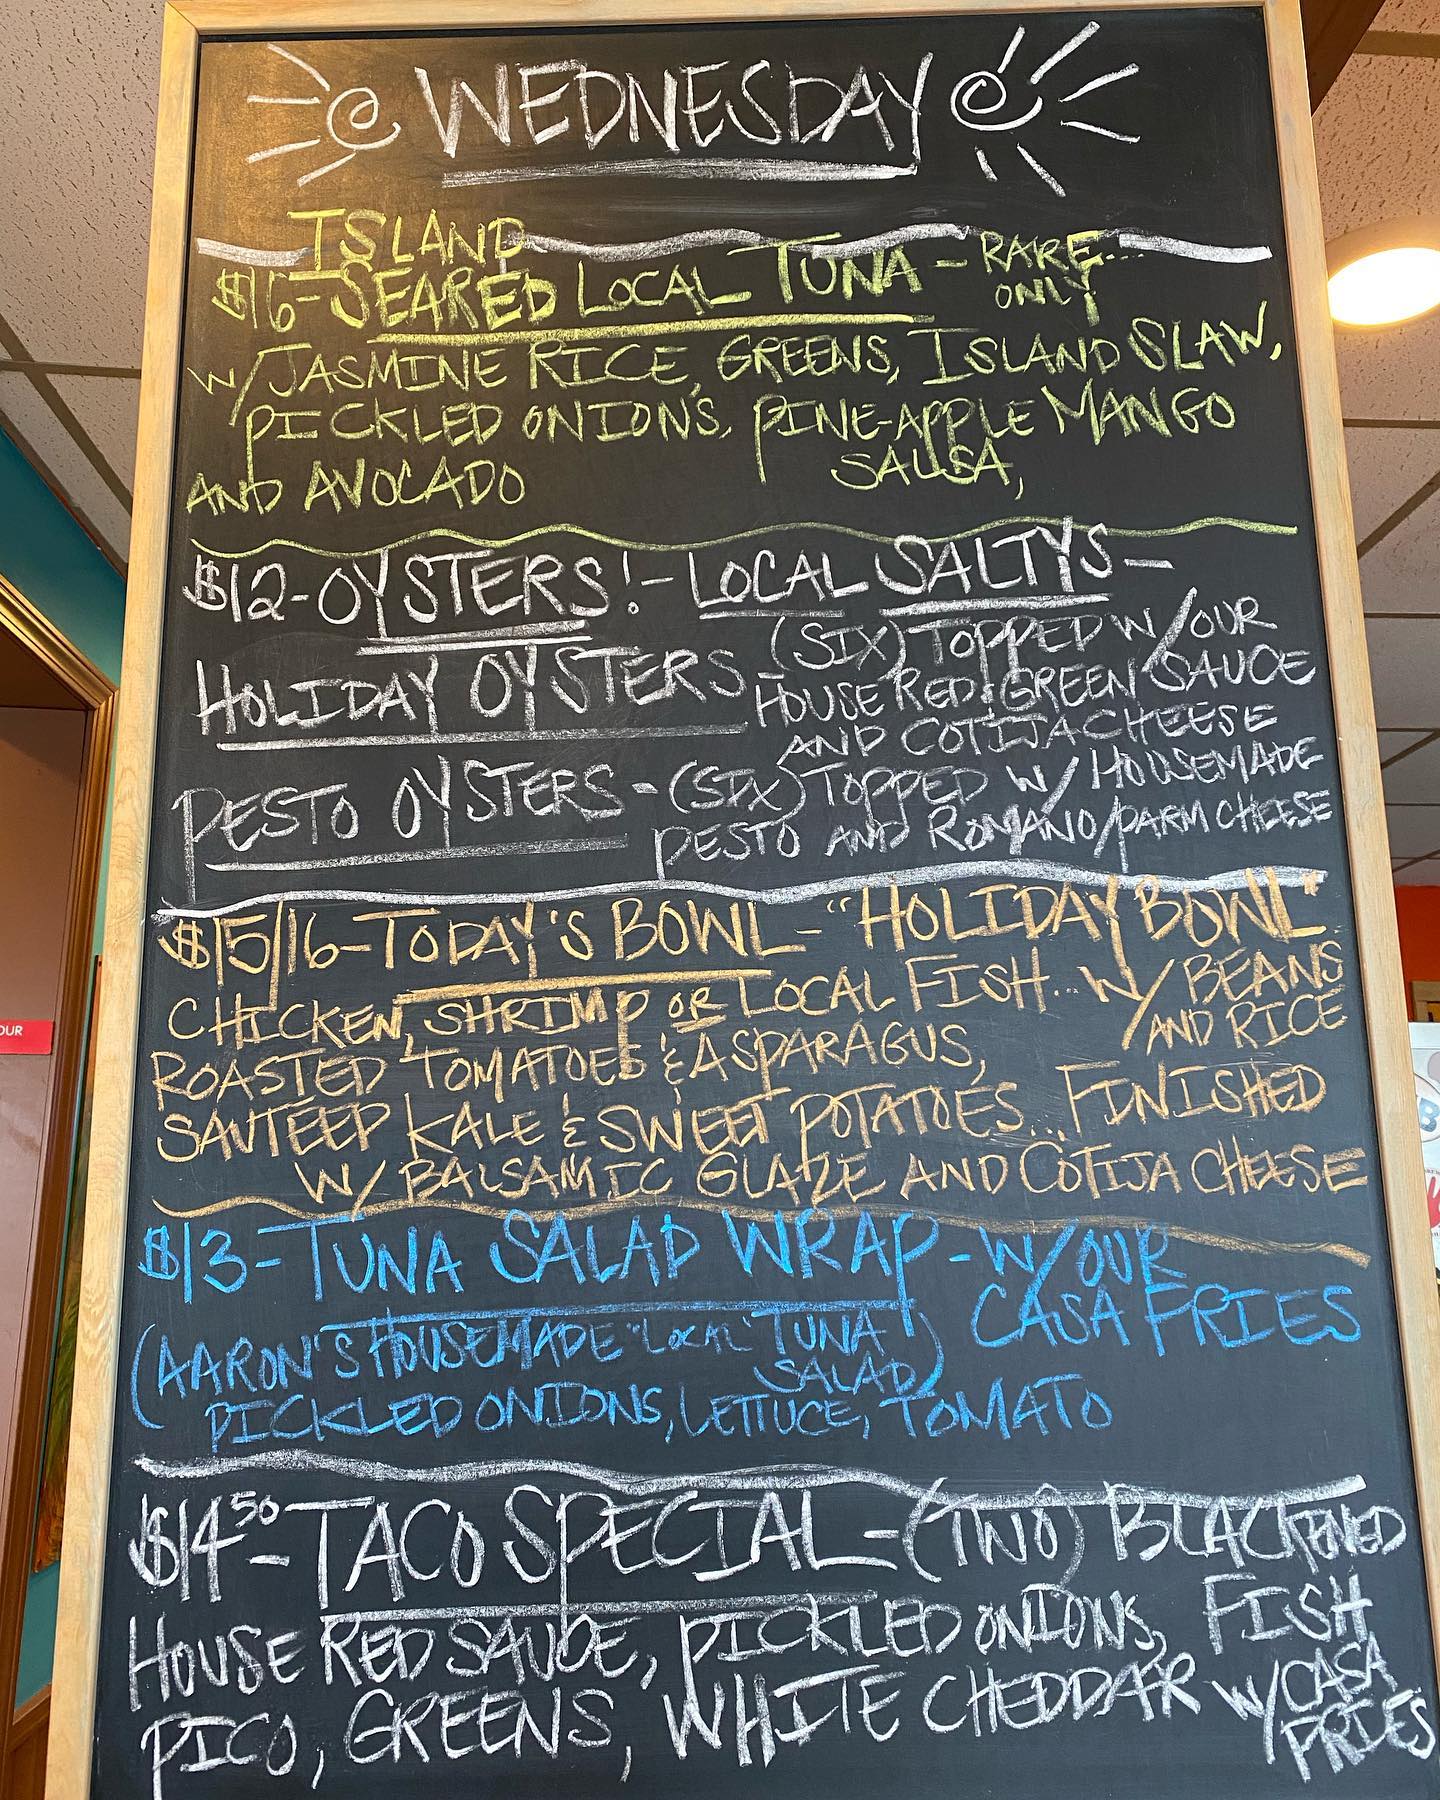 WEDNESDAY
ISLAND
$16-SEARED LOCAL TUNA - RARE...
ONLY
W/JASMINE RICE, GREENS, ISLAND SLAW,
PICKLED ONIONS, PINE-APPLE MANGO
SALSA,
AND AVOCADO
$12-OYSTERS!- LOCAL SALTYS-
HOLIDAY OYSTERS - (SIX) TOPPED W/OUR
HOUSE RED & GREEN SAUCE
AND COTIJA CHEESE
PESTO OYSTERS - (SIX) TOPPED W/ HOUSEMADE
PESTO AND ROMANO/PARM CHEESE
$15/16-TODAY'S BOWL - "HOLIDAY BOWL"
CHICKEN, SHRIMP OR LOCAL FISH... W/ BEANS
AND RICE
ROASTED TOMATOES & ASPARAGUS,
SAUTEED KALE & SWEET POTATOES... FINISHED
W/ BALSAMIC GLAZE AND COTIJA CHEESE
$13-TUNA SALAD WRAP - W/OUR
CASA FRIES
(AARON'S HOUSEMADE "LOCAL" TUNA
SALAD)
PICKLED ONIONS, LETTUCE, TOMATO
$14.50 - TACO SPECIAL - (TWO) BLACKENED
FISH
HOUSE RED SAUCE, PICKLED ONIONS,
PICO, GREENS, WHITE CHEDDAR W/CASA
FRIES
OUR
B